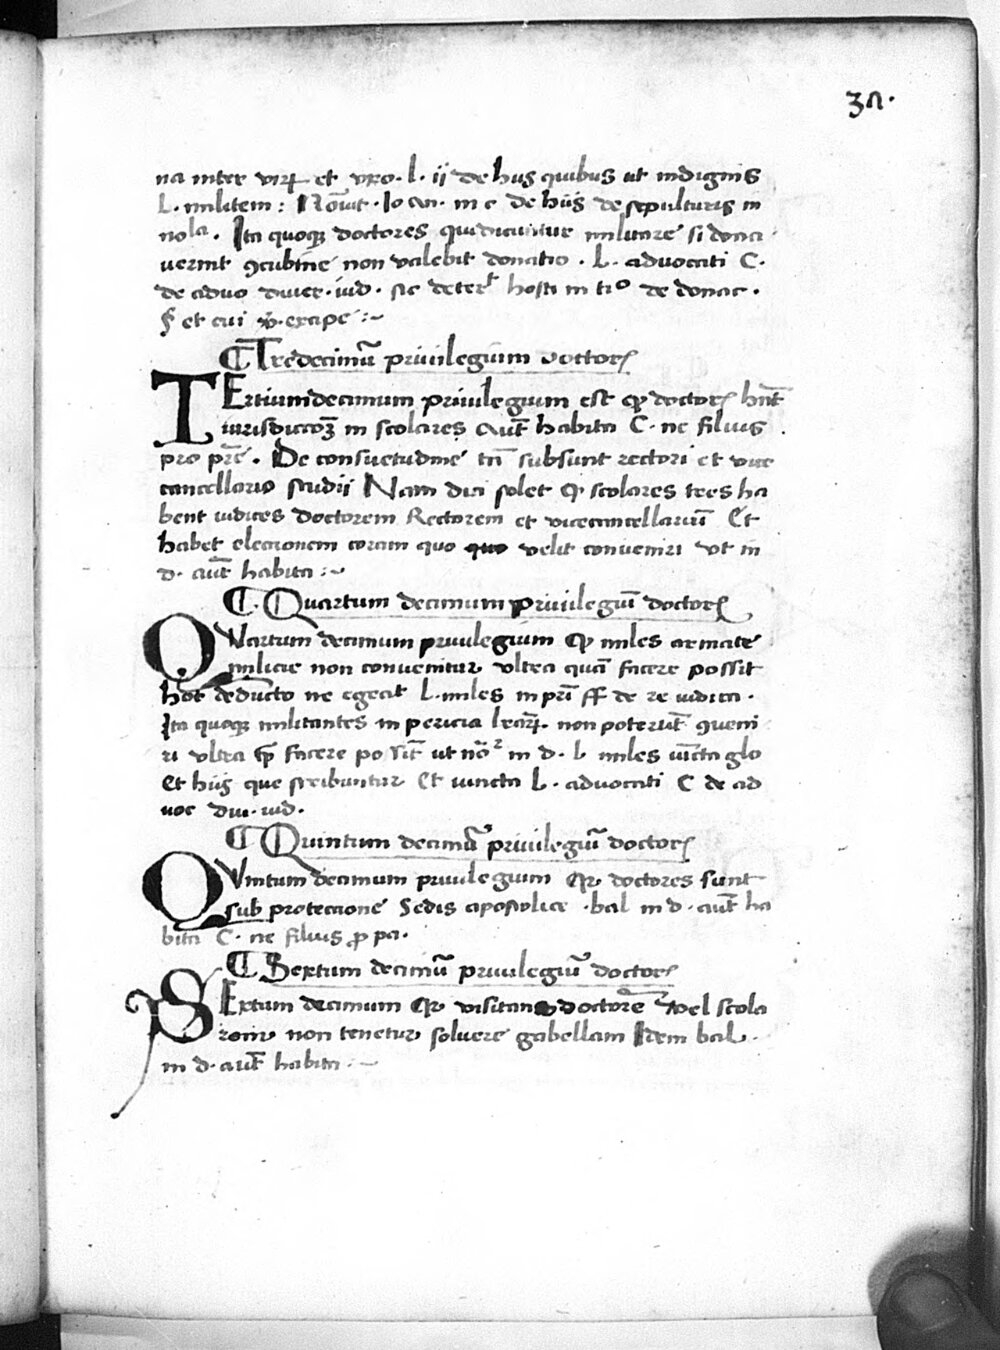 3Λ.
na inter virꝝ et vxo. l. ij de hus quibus ut indignis
L. militem : Noīut. Io an. in c de hiis de sepulturis in
nola. Ita quoqꝫ doctores qui dicuntur militare si dona
uerint ꝯcubine non valebit donatio. L. aduocati C.
de aduo diuer. iud. sic deter^t hosti in ti^o de donac.
§ et cui ꝟ. excipe :~
¶ Tredecimū priuilegium doctorꝝ
TErtiumdecimum priuilegium est ꝙ doctorꝝ hñt
iurisdictoꝫ in scolares aut̄ habita C. ne filius
pro pr̄e. De consuetudine tn̄ subsunt rectori et vice
cancellario studii Nam dici solet ꝙ scolares tres ha
bent iudices doctorem Rectorem et vicecancellariū Et
habet electionem coram quo velit conueniri vt in
d. aut̄ habita :~
¶. Quartum decimum priuilegiū doctorꝝ
QVartum decimum priuilegium ꝙ miles armate
milicie non conuenitur vltra quā facere possit
hoc deducto ne egeat L. miles in prī ff de re iudica.
Ita quoqꝫ militantes in pericia legꝝ. non poterūt ꝯueni
ri vltra ꝙ facere possīt ut nō^r in d. L miles iūcta glo
Et hiis que scribuntur Et iuncta L. aduocati C de ad
uoc diu. iud.
¶ Quintum decimū priuilegiū doctorꝝ
QVintum decimum priuilegium ꝙ doctores sunt
sub protectione Sedis apostolice . bal in d. aut̄ ha
bita C. ne filius ꝓ pa.
¶ Sextum decimū priuilegiū doctorꝝ
SExtum decimum ꝙ visitans doctorē vel scola
rem non tenetur soluere gabellam Idem bal.
in d. aut̄ habita :~